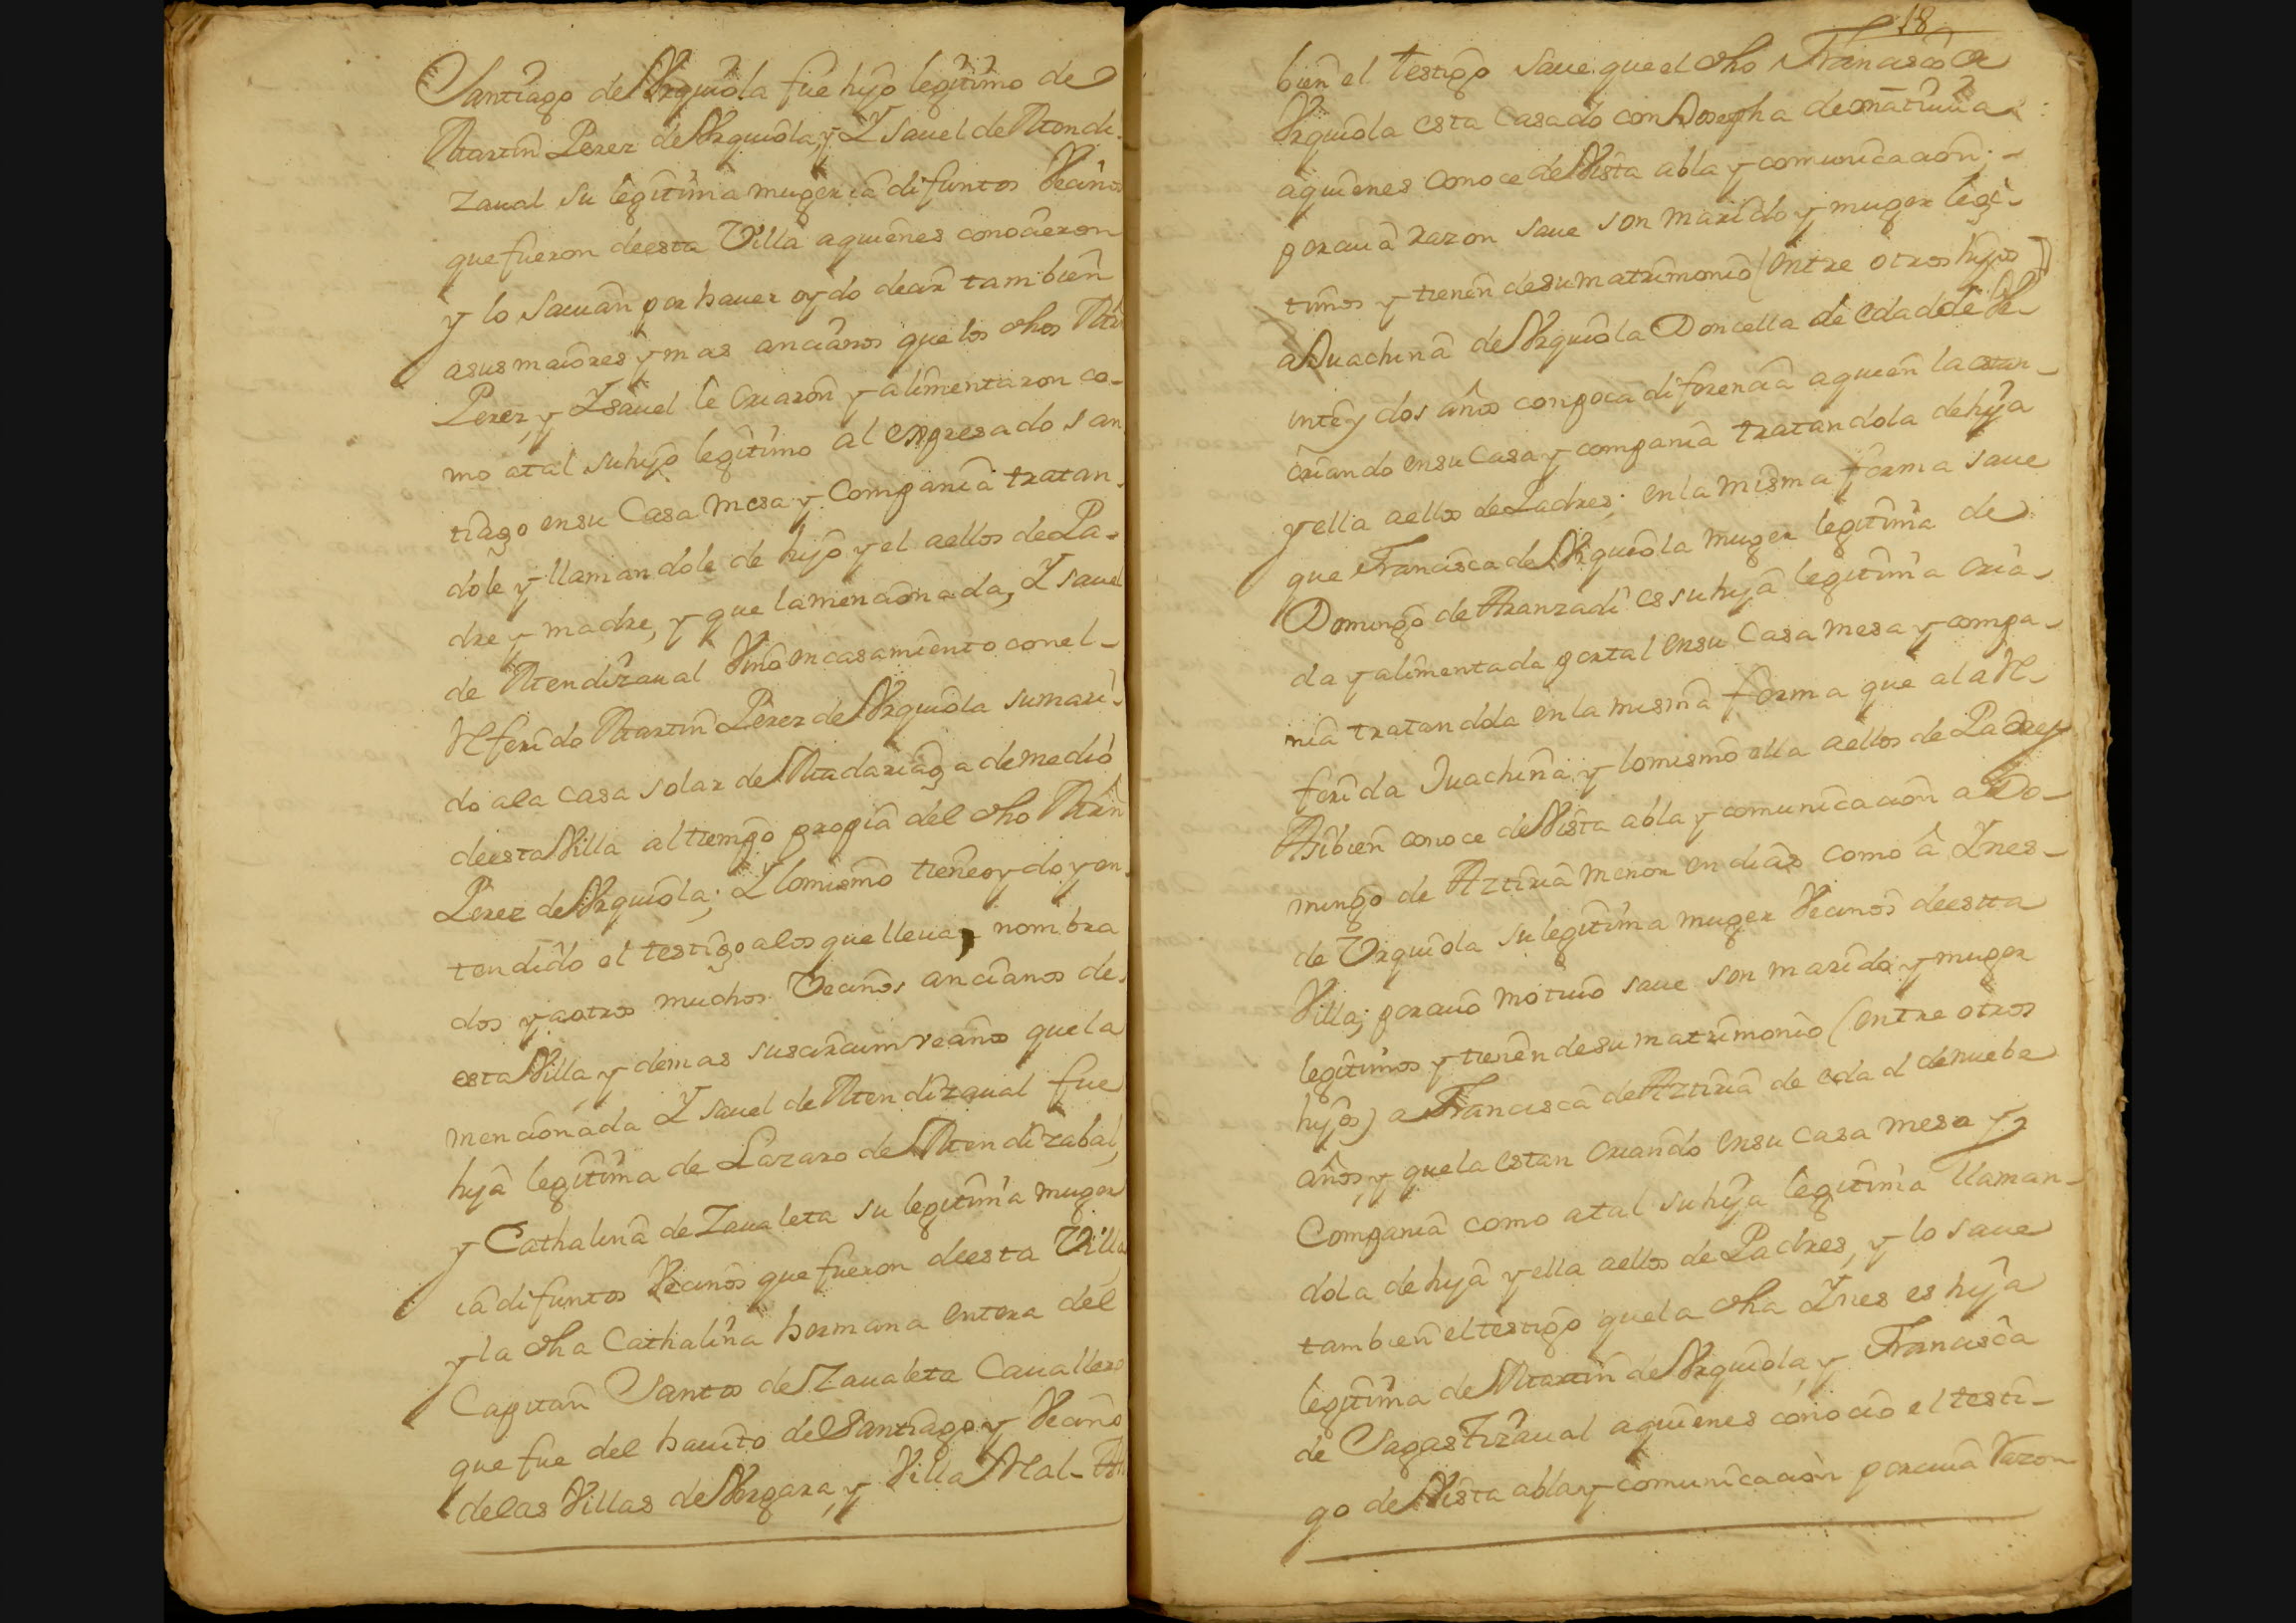 Santiago de Vrquiola fue hijo legitimo de
Martin Perez de Vrquiola, y Ysauel de Mendi-
zaual su legitima muger ia difuntos Vecinos
que fueron deesta Villa aquienes conocieron
y lo sauian por hauer oydo decir tambien
asus maiores y mas ancianos que los dhos Mrn
Perez, y Ysauel le Criaron y alimentaron co-
mo atal su hijo legitimo al expresado san
tiago ensu Casa mesa y Compania tratan-
dole y llamandole de hijo y el aellos de Pa-
dre y madre, y que lamencionada, Ysauel
de Mendizaual Vino en casamiento conel-
Referido Martin Perez de Vrquiola sumari-
do ala casa solar de Madariaga demedio
deesta Villa altiempo propia del dho Mrn
Perez de Vrquiola; Y lomismo tiene oydo y en-
tendido el testigo alos que lleua nombra
dos y aotros muchos Vecinos ancianos de-
esta Villa, y demas suscircumvecinos quela
mencionada Ysauel de Mendizaual fue
hija legitima de Lazaro de Mendizabal,
y Cathalina de Zaualeta su legitima muger
ia difuntos Vecinos que fueron deesta Villa
y la dha Cathalina hermana entera del
Capitan Santos de Zaualeta Cauallero
que fue del hauito de Santiago y Vecino
delas Villas de Vergara, y Villa Real- Asi
18
bien el testigo saue que el dho Francisco de
Vrquiola esta Casado con Josepha de
aquienes conoce de Vista abla y comunicacion;-
por cuia razon saue son marido y muger legi-
timos y tienen desu matrimonio (entre otros hijos)
a Juachina de Vrquiola Doncella de edad de Ve-
inte y dos años con poca diferencia aquien la estan-
criando ensu Casa y compania tratandola dehija
y ella aellos de Padres; en la misma forma saue
que Francisca de Vrquiola muger legitima de
Domingo de Aranzadi es su hija legitima cria-
da y alimentada portal ensu Casa mesa y compa-
nia tratandola en la misma forma que ala Re-
ferida Juachina, y lomismo ella aellos de Padres
Asibien conoce de Vista abla y comunicacion a Do-
mingo de Aztiria menor en dias como â Ynes-
de Vrquiola su legitima muger Vecinos deesta
Villa; por cuio motiuo saue son marido y muger
legitimos y tienen desu matrimonio (entre otros
hijos) a Francisca de Aztiria de edad de nuebe
años, y quela estan criando ensu casa mesa y
Compania como atal su hija legitima llaman-
dola de hija y ella aellos de Padres, y lo saue
tambien el testigo quela dha Ynes es hija
legitima de Martin de Vrquiola, y Francisca
de Sagastizaual aquienes conocio el testi-
go de Vista abla y comunicacion por cuia Razon